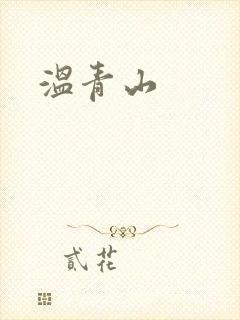 溫青山
貳花